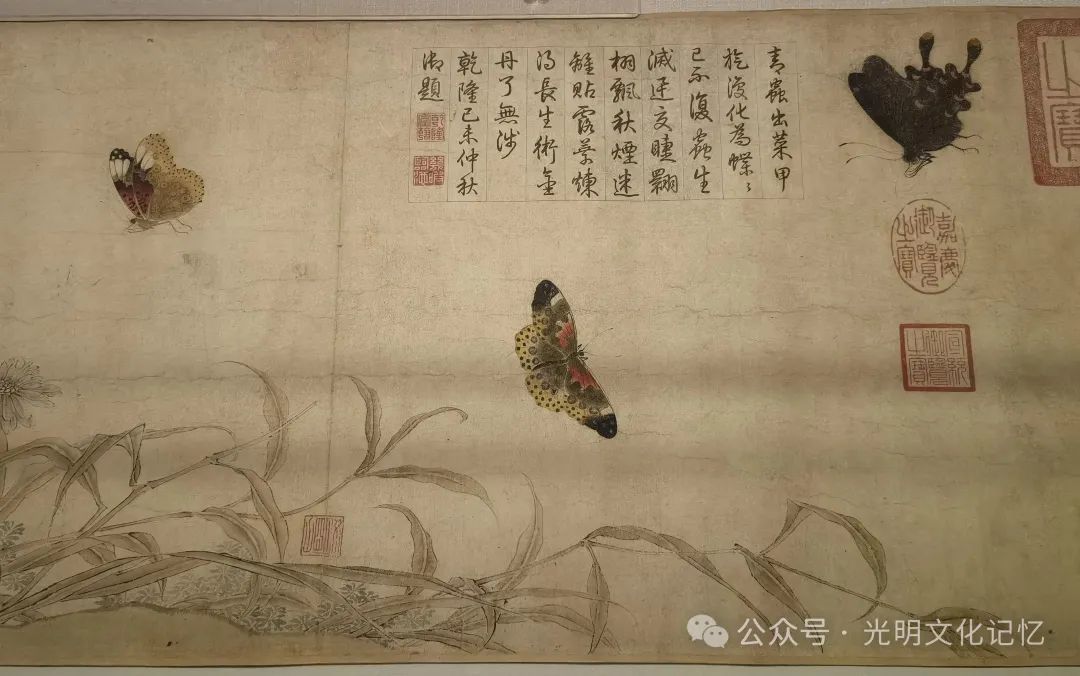 青蟲出菜甲
化為蝶〻
已不復蟲生
滅交睫翾
栩飄秋煙迷
離貼露葉煉
得長生術金
丹了無涉
乾隆己未仲秋
御題
之寶
嘉慶御覽之寶
宣統御覽之寶
公众号·光明文化记忆